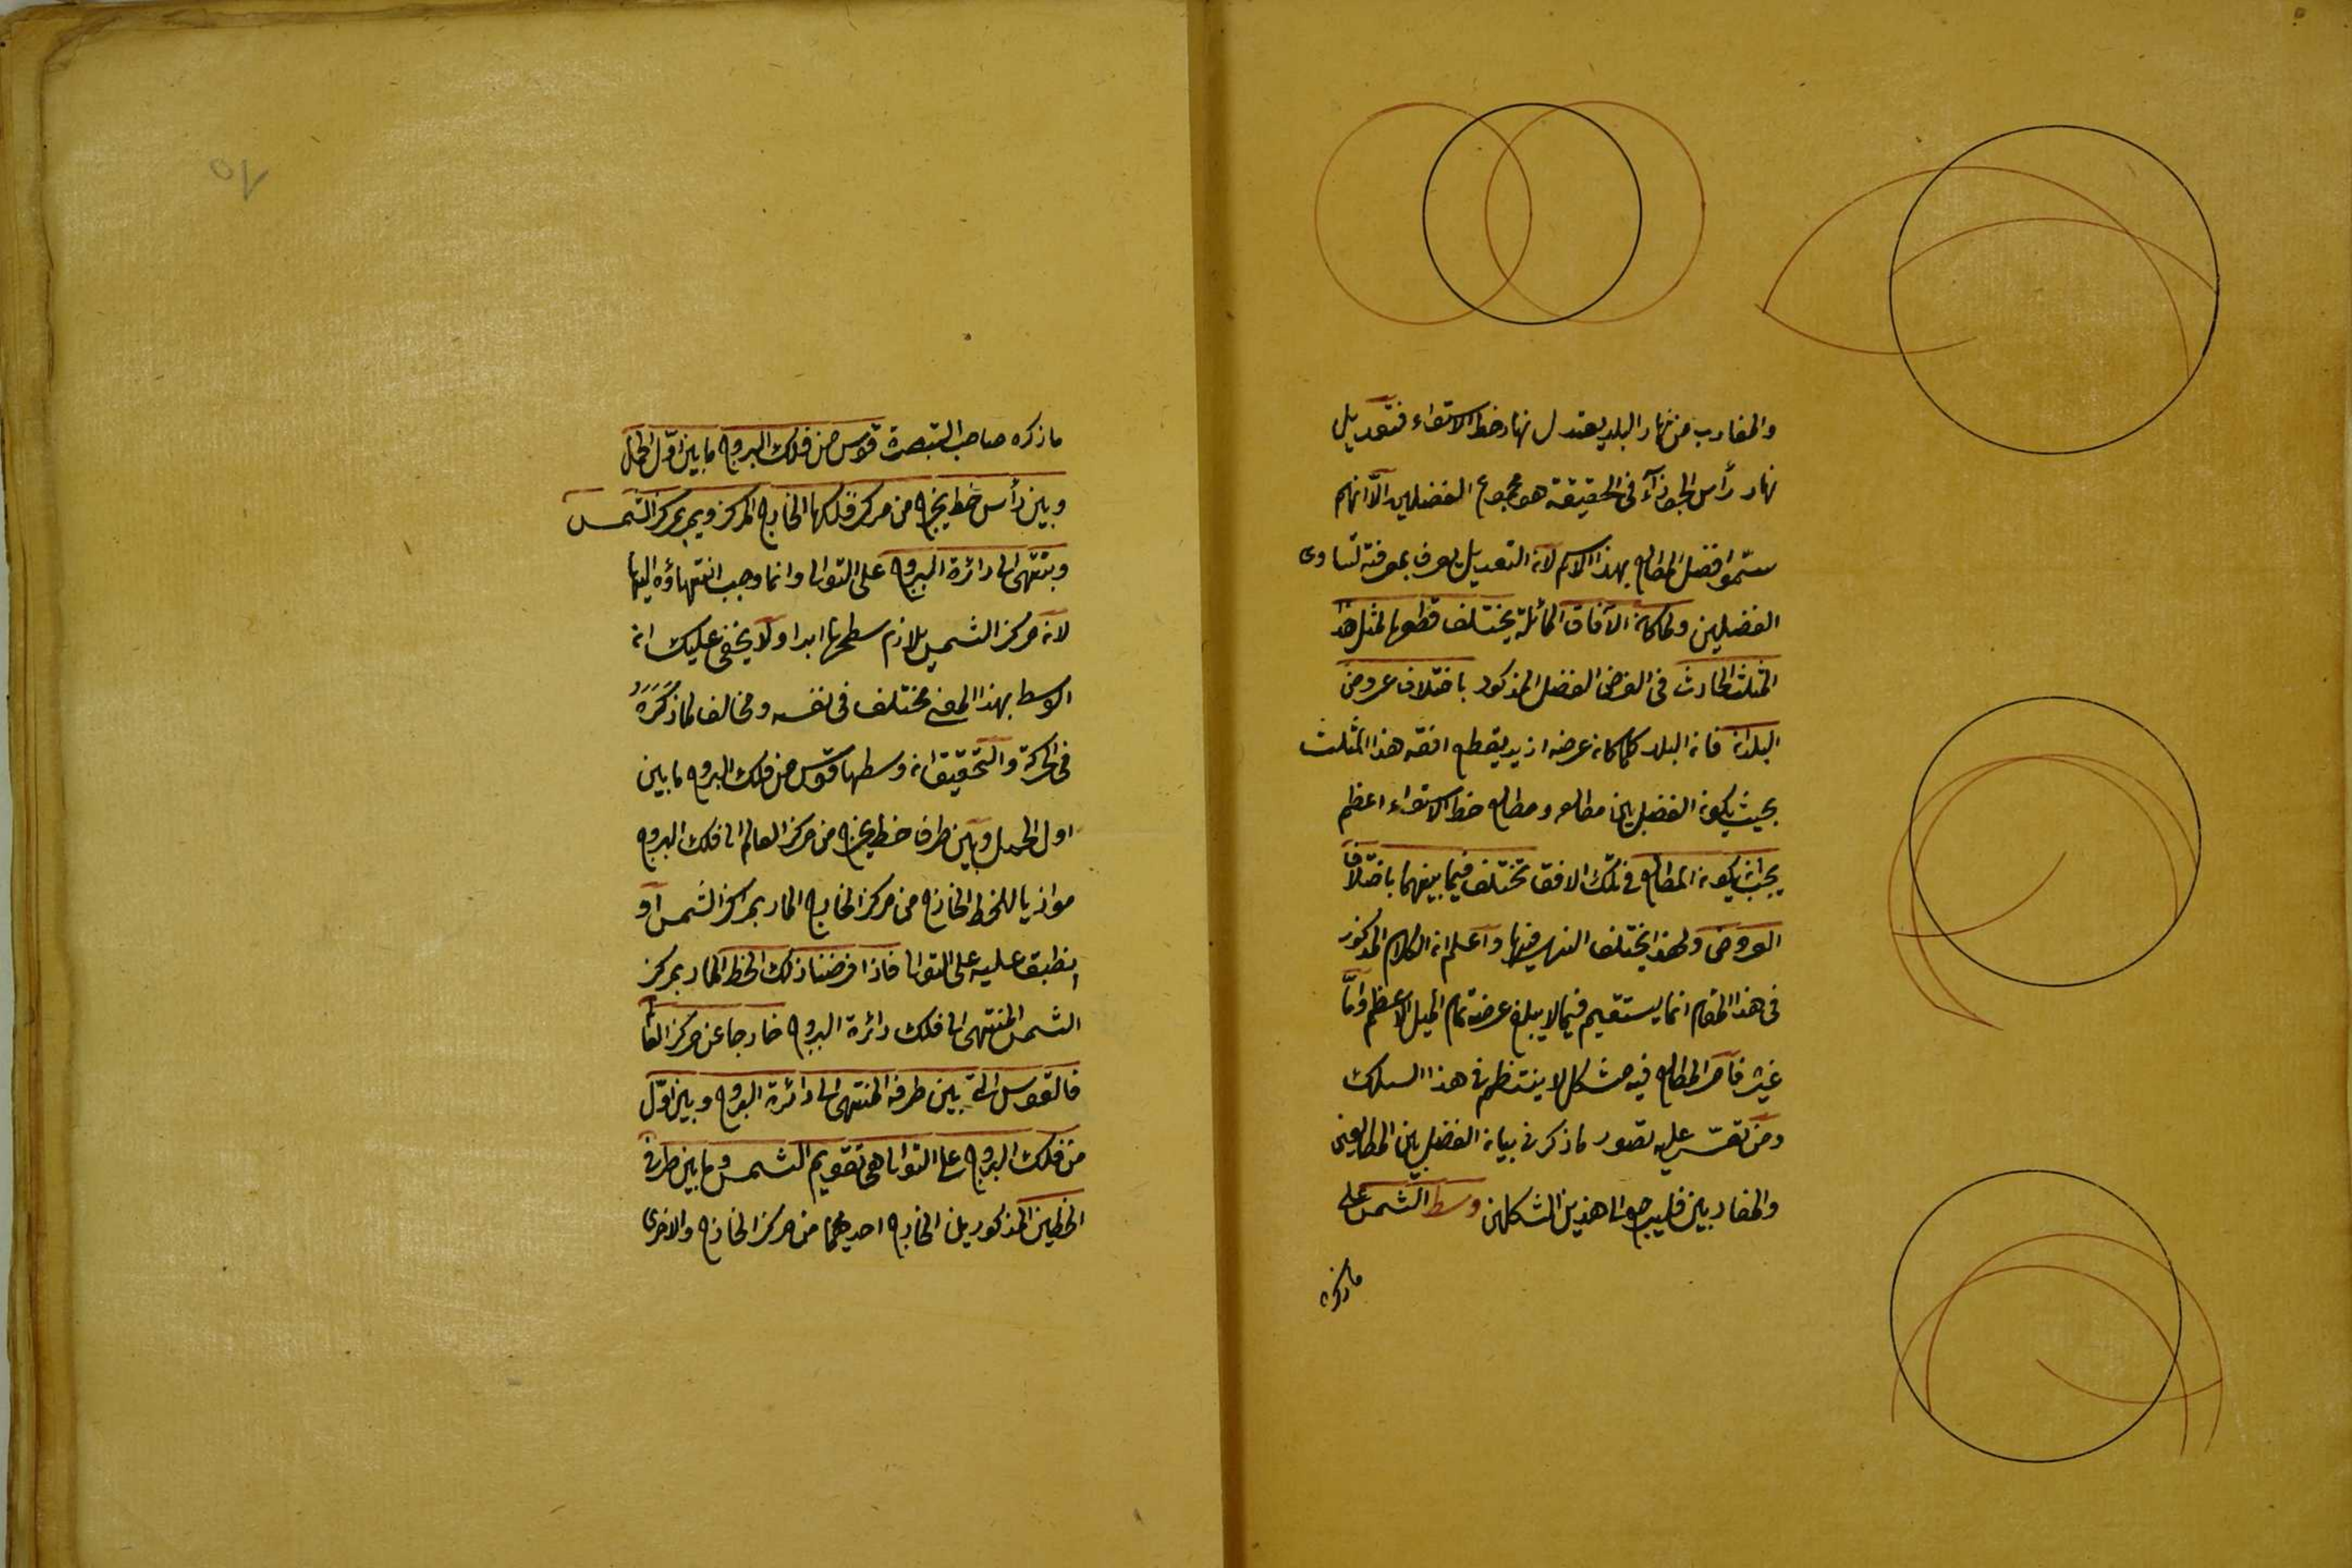 والمغارب من نهار البلد يعتدل نهار خط الاستواء فتعديل
نهار رأس الجوزآء فى الحقيقة هو مجموع الفضلين الّا انهم
سمّوا فضل المطالع بهذا الاسم لان التعديل يعرف بمعرفته لتساوى
الفضلين ولما كان الآفاق المائلة يختلف قطعها لمثل هذا
المثلث الحادث فى الفرض الفضل المذكور باختلاف عروض
البلدان فان البلد كلما كان عرضه ازيد يقطع افقه هذا المثلث
بحيث يكون الفضل بين مطالعه ومطالع خط الاستواء اعظم
يجب ان يكون المطالع فى تلك الافق تختلف فيما بينهما باختلاف
العروض ولهذا يختلف النهر فيها واعلم ان الكلام المذكور
فى هذا المقام انما يستقيم فيما لا يبلغ عرضه تمام الميل الاعظم وامّا
غيره فامر المطالع فيه مشكل لا ينتظم فى هذا السلك
ومن تعسّر عليه تصور ما ذكر فى بيان الفضل بين المطالعين
والمغاربين فليرجع الى هذين الشكلين وسط الشمس على
ما ذكره
ما ذكره صاحب التبصرة قوس من فلك البروج ما بين اوّل الحمل
وبين رأس خط يخرج من مركز فلكها الخارج المركز ويمر بمركز الشمس
وينتهى الى دائرة البروج على التوالى وانما وجب انتهاؤه اليها
لان مركز الشمس يلازم سطحها ابدا ولا يخفى عليك ان
الوسط بهذا المعنى مختلف فى نفسه ومخالف لما ذكره
فى الحركة والتحقيق ان وسطها قوس من فلك البروج ما بين
اول الحمل وبين طرف خط يخرج من مركز العالم الى فلك البروج
موازيا للخط الخارج من مركز الخارج المار بمركز الشمس او
انطبق عليه على التوالى فاذا فرضنا ذلك الخط المار بمركز
الشمس المنتهى الى فلك دائرة البروج خارجا عن مركز العالم
فالقوس التى بين طرفه المنتهى الى دائرة البروج وبين اوّل
من فلك البروج على التوالى هى تقويم الشمس وما بين طرفى
الخطين المذكورين الخارج احديهما من مركز الخارج والاخرى